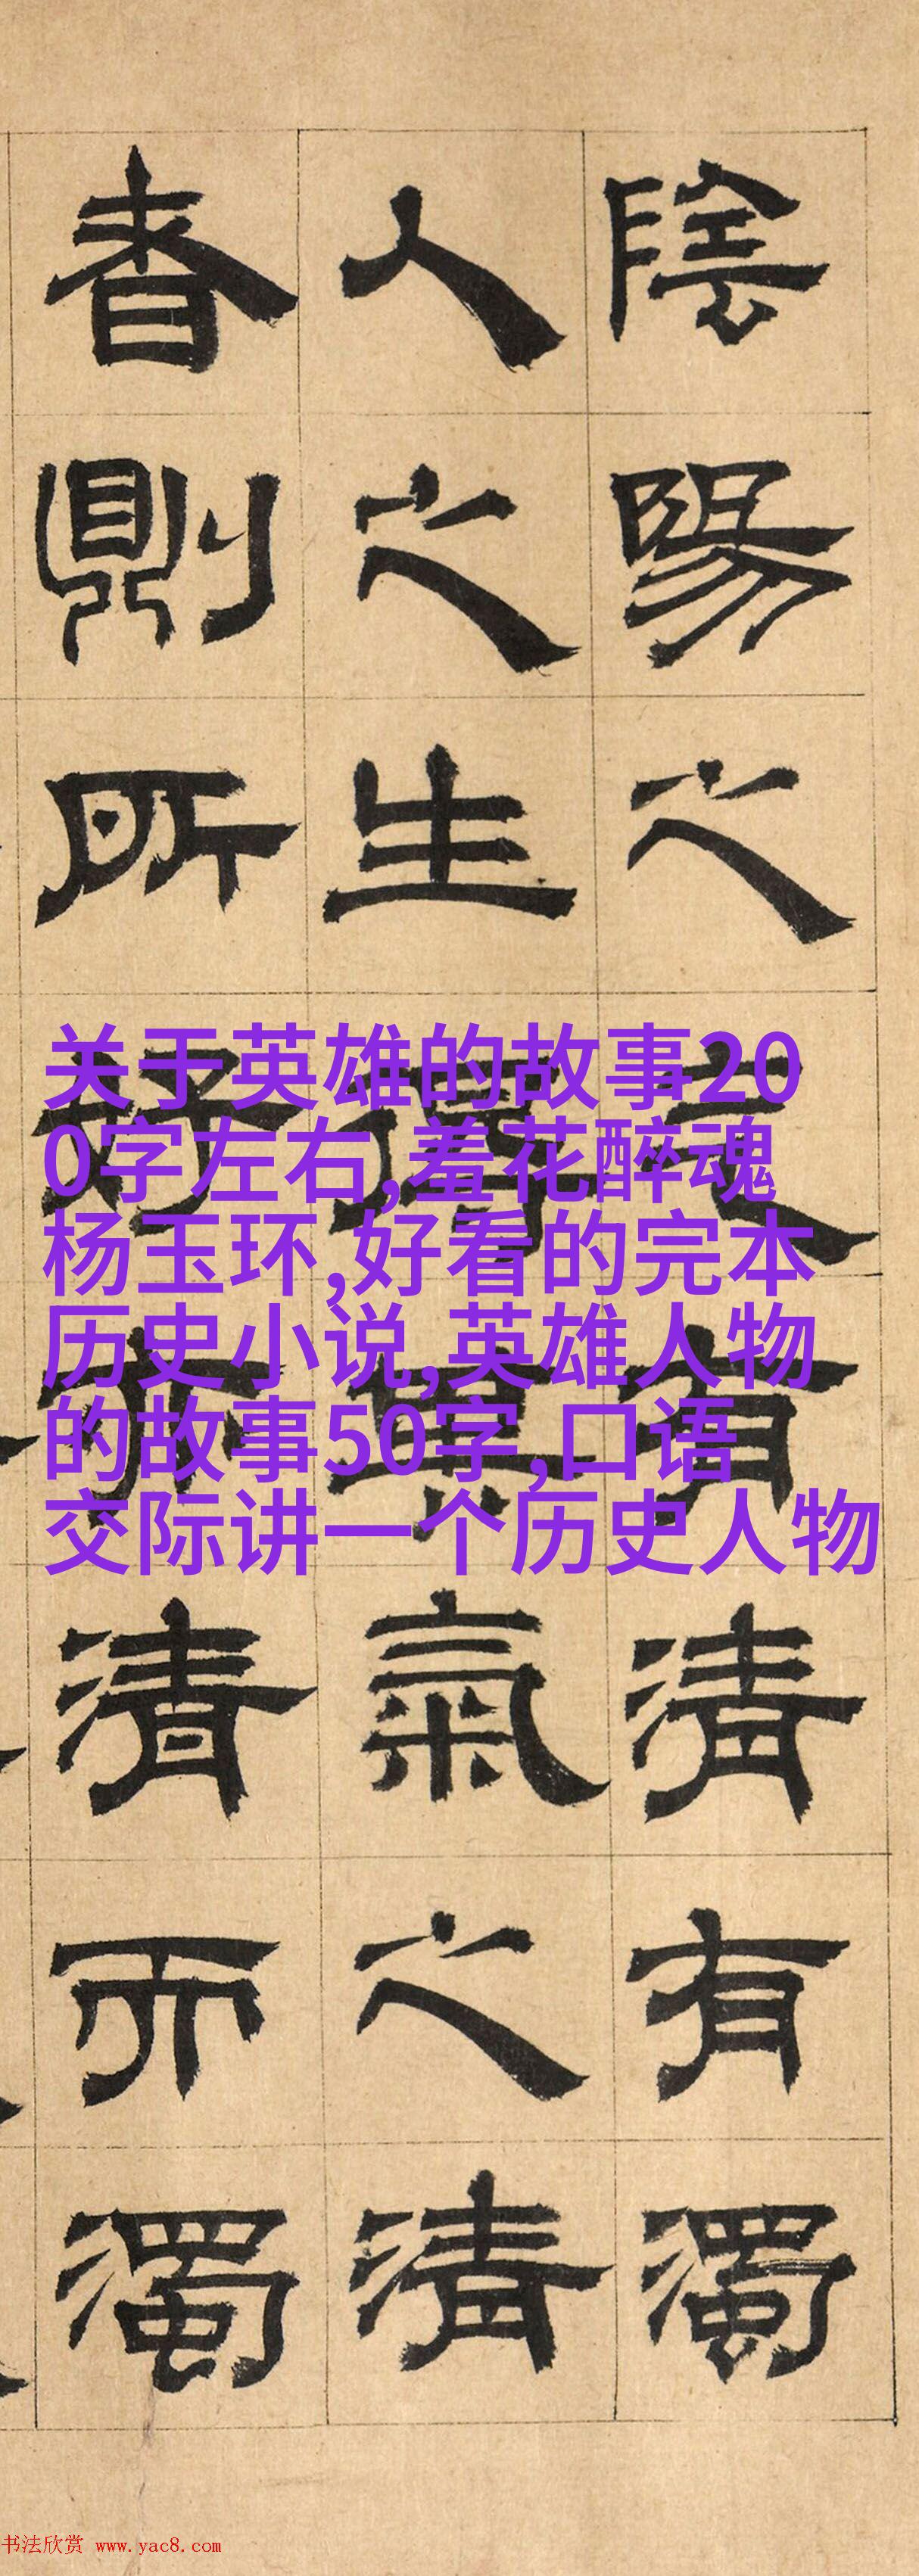 陰陽之有清有濁
人之生得氣之清
者則所好亦清而濁
关于英雄的故事20
0字左右,羞花醉魂
杨玉环,好看的完本
历史小说,英雄人物
的故事50字,口语
交际讲一个历史人物
书法欣赏 www.yac8.com